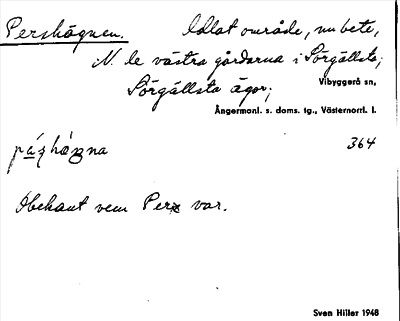 Pershågnen. Odlat område, nu bete,
N. le västra gårdarna i Sörgällsta;
Sörgällsta ägor; Vibyggerå sn,
Ångermanl. s. doms. tg., Västernorrl. l.
364
Obekant vem Per var.
Sven Hiller 1948